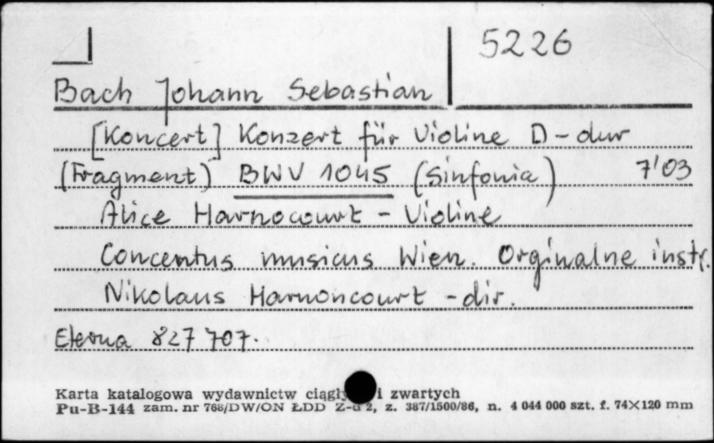 5226
Bach Johann Sebastian
[Koncert] Konzert für Violine D-dur
(Fragment) BWV 1045 (Sinfonia) 7'03
Alice Harnocourt - Violine
Concentus musicus Wien. Orginalne instr.
Nikolaus Harnoncourt - dir.
Eterna 827 707.
Karta katalogowa wydawnictw i zwartych
Pu-B-144 zam. nr 768/DW/ON ŁDD Z-d 2, z. 387/1500/86, n. 4 044 000 szt. f. 74×120 mm